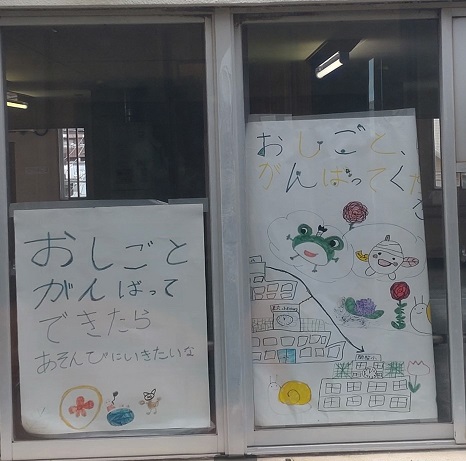 おしごと
がんばって
できたら
あそんびにいきたいな
おしごと、
がんばってくだ
さ